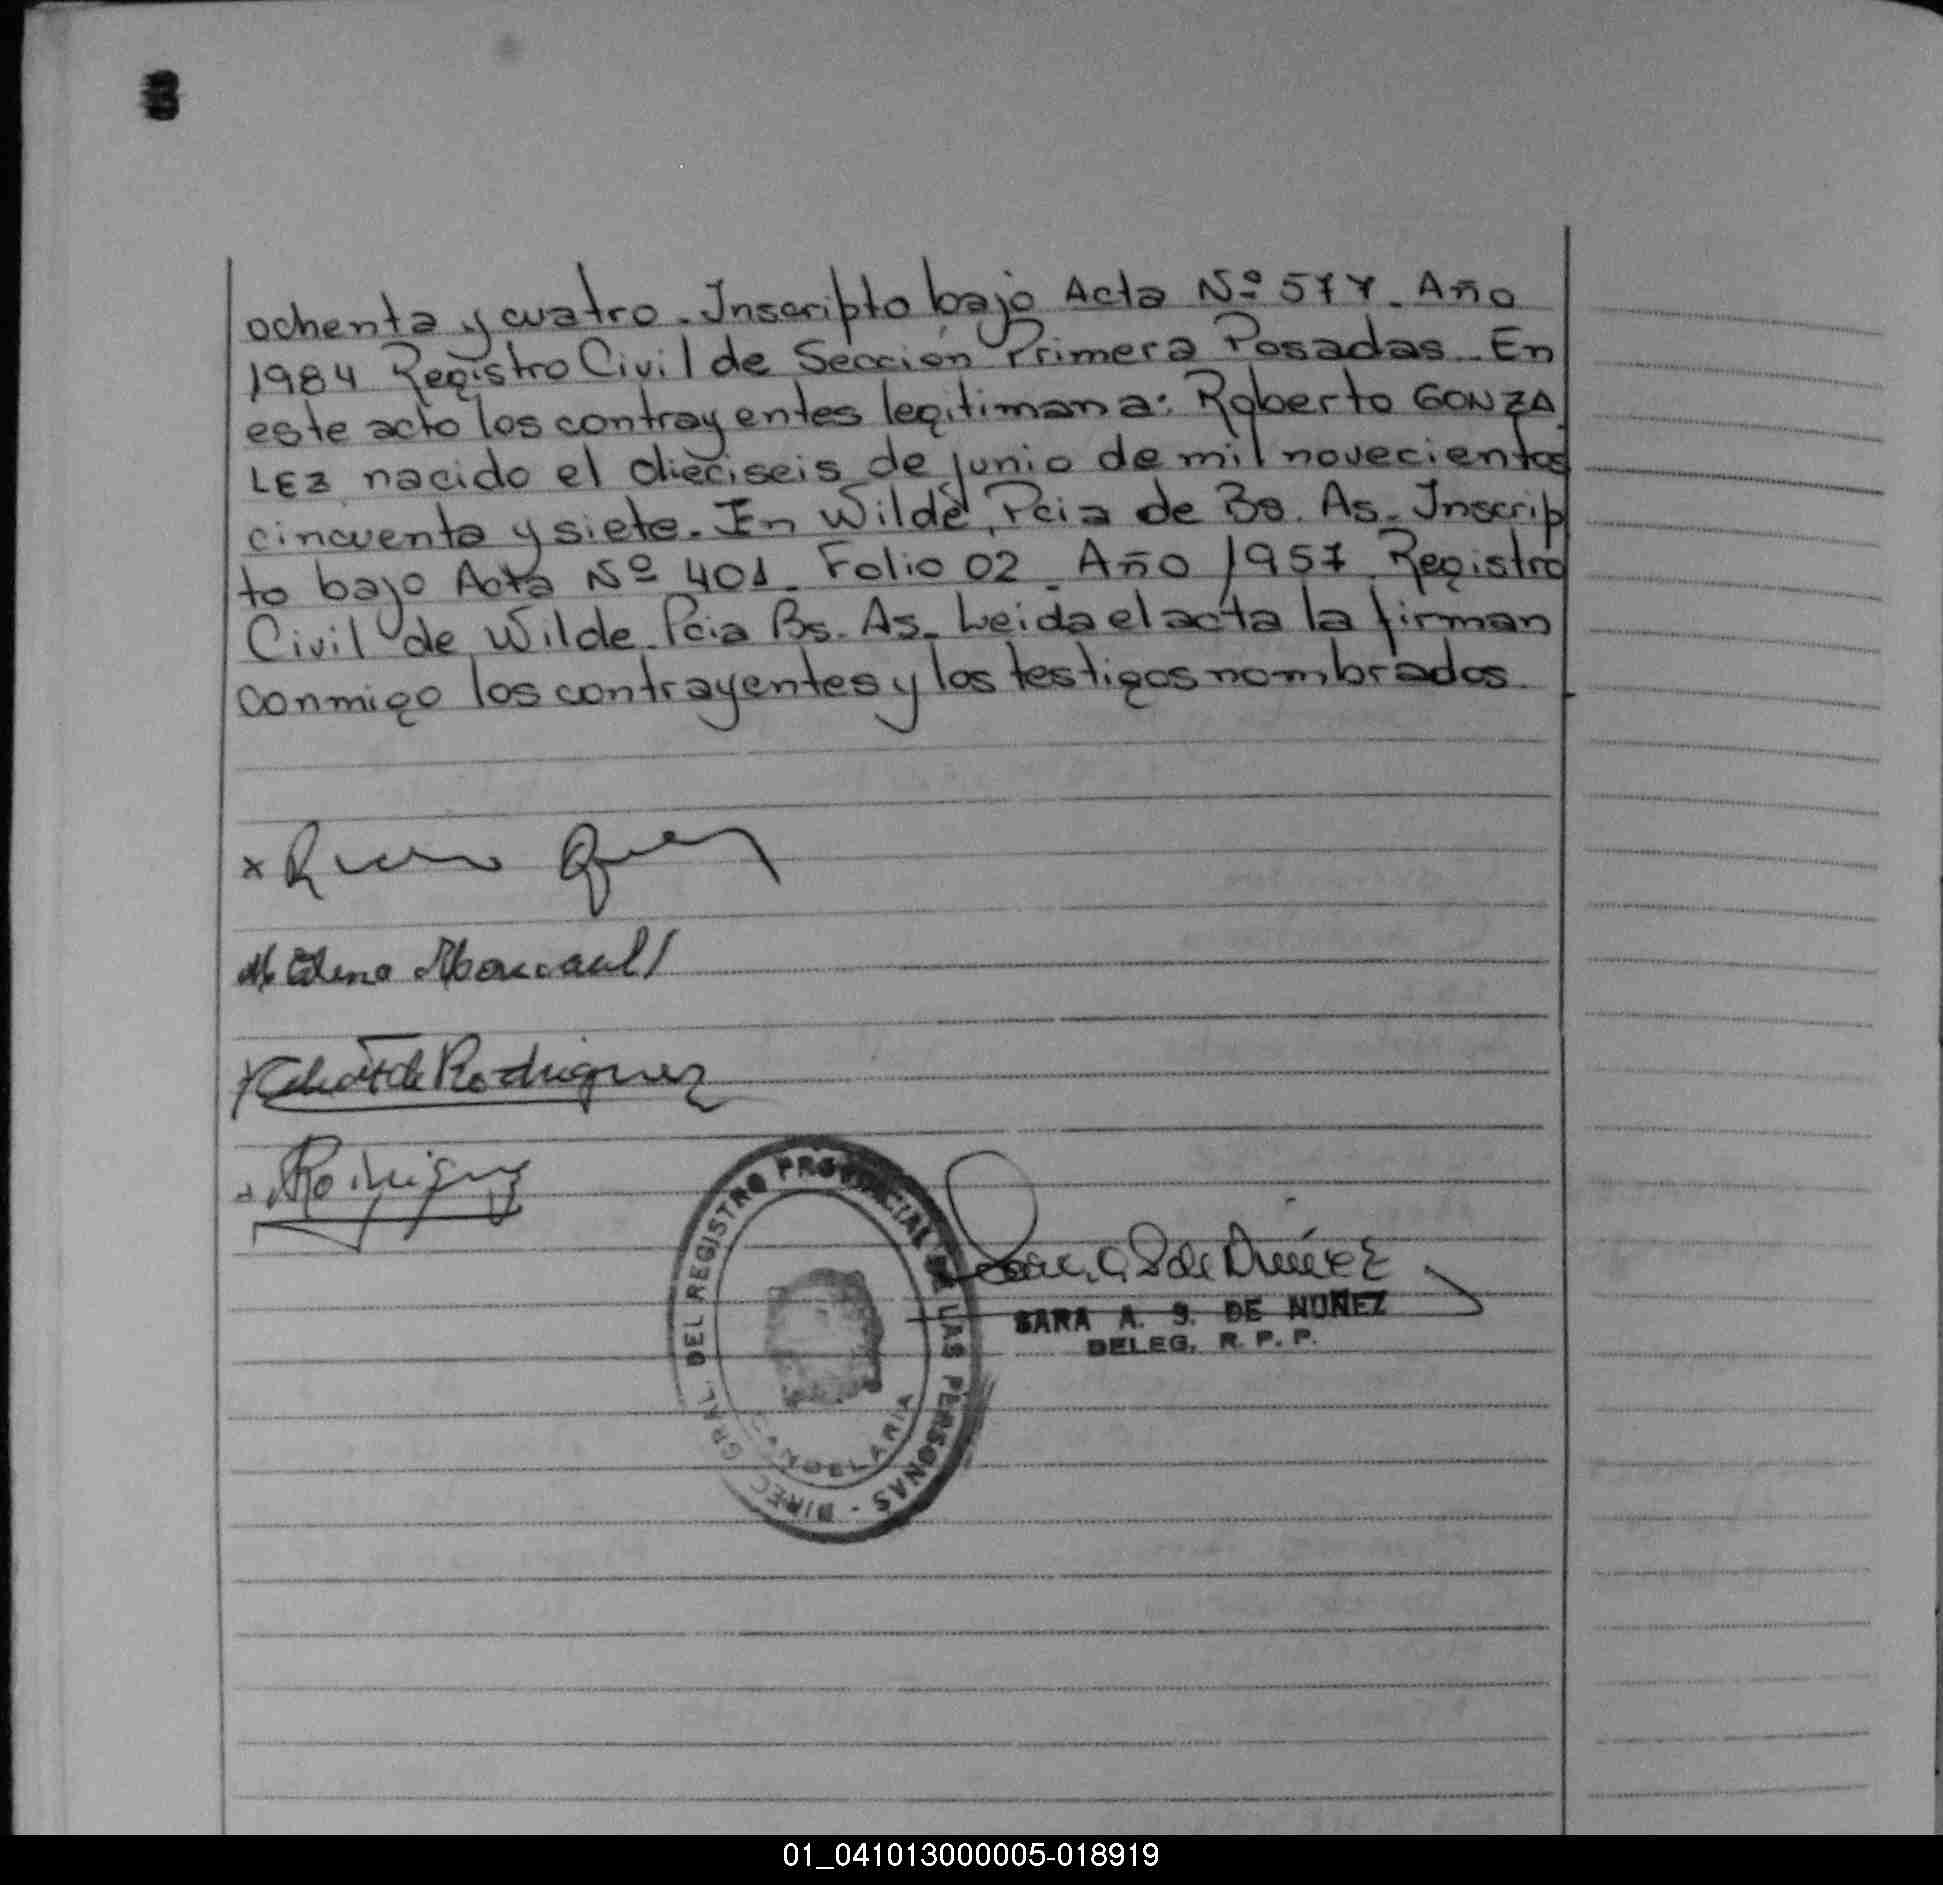 ochenta y cuatro. Inscripto bajo Acta Nº 577. Año
1984 Registro Civil de Sección Primera Posadas. En
este acto los contrayentes legitiman a: Roberto GONZA
LEZ nacido el dieciseis de junio de mil novecientos
cincuenta y siete. En Wilde, Pcia de Bs. As. Inscrip
to bajo Acta Nº 401. Folio 02. Año 1957. Registro
Civil de Wilde. Pcia Bs. As. Leida el acta la firman
conmigo los contrayentes y los testigos nombrados.
de Rodriguez
Rodriguez
DIREC. GRAL. DEL REGISTRO PROVINCIAL DE LAS PERSONAS -
CANDELARIA
SARA A. S. DE NUÑEZ
DELEG. R. P. P.
01_041013000005-018919